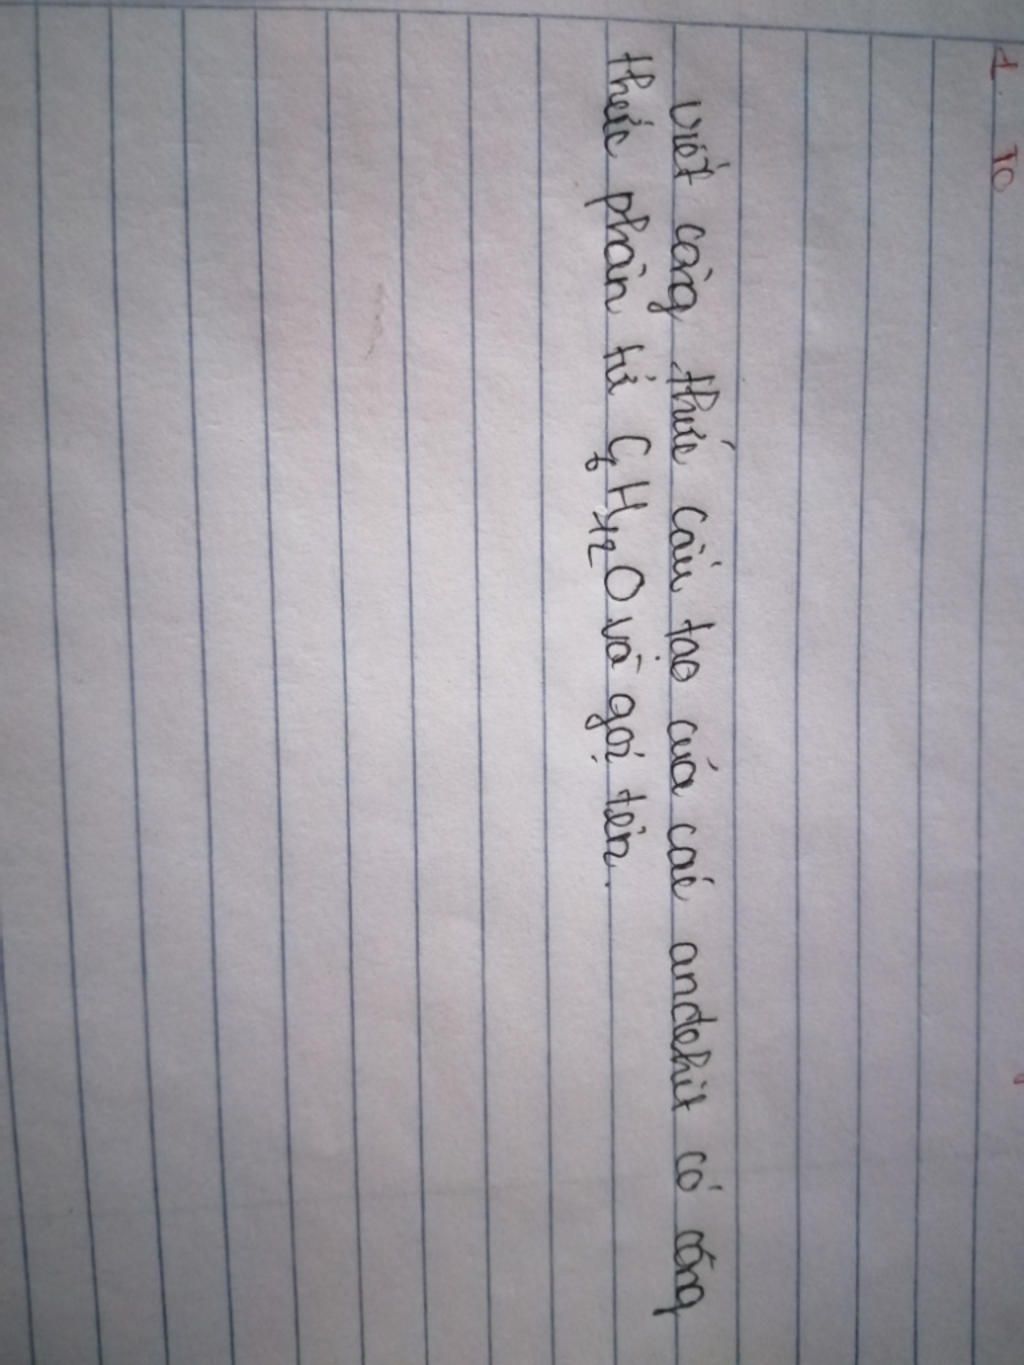 1 TC
viết công thức cấu tạo của các anđehit có công
thức phân tử C₆H₁₂O và gọi tên.